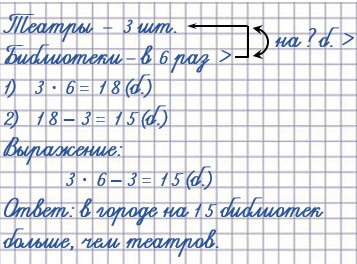 Театры – 3 шт.
Библиотеки – в 6 раз > на ? б. >
1) 3 · 6 = 18 (б.)
2) 18 – 3 = 15 (б.)
Выражение:
3 · 6 – 3 = 15 (б.)
Ответ: в городе на 15 библиотек
больше, чем театров.